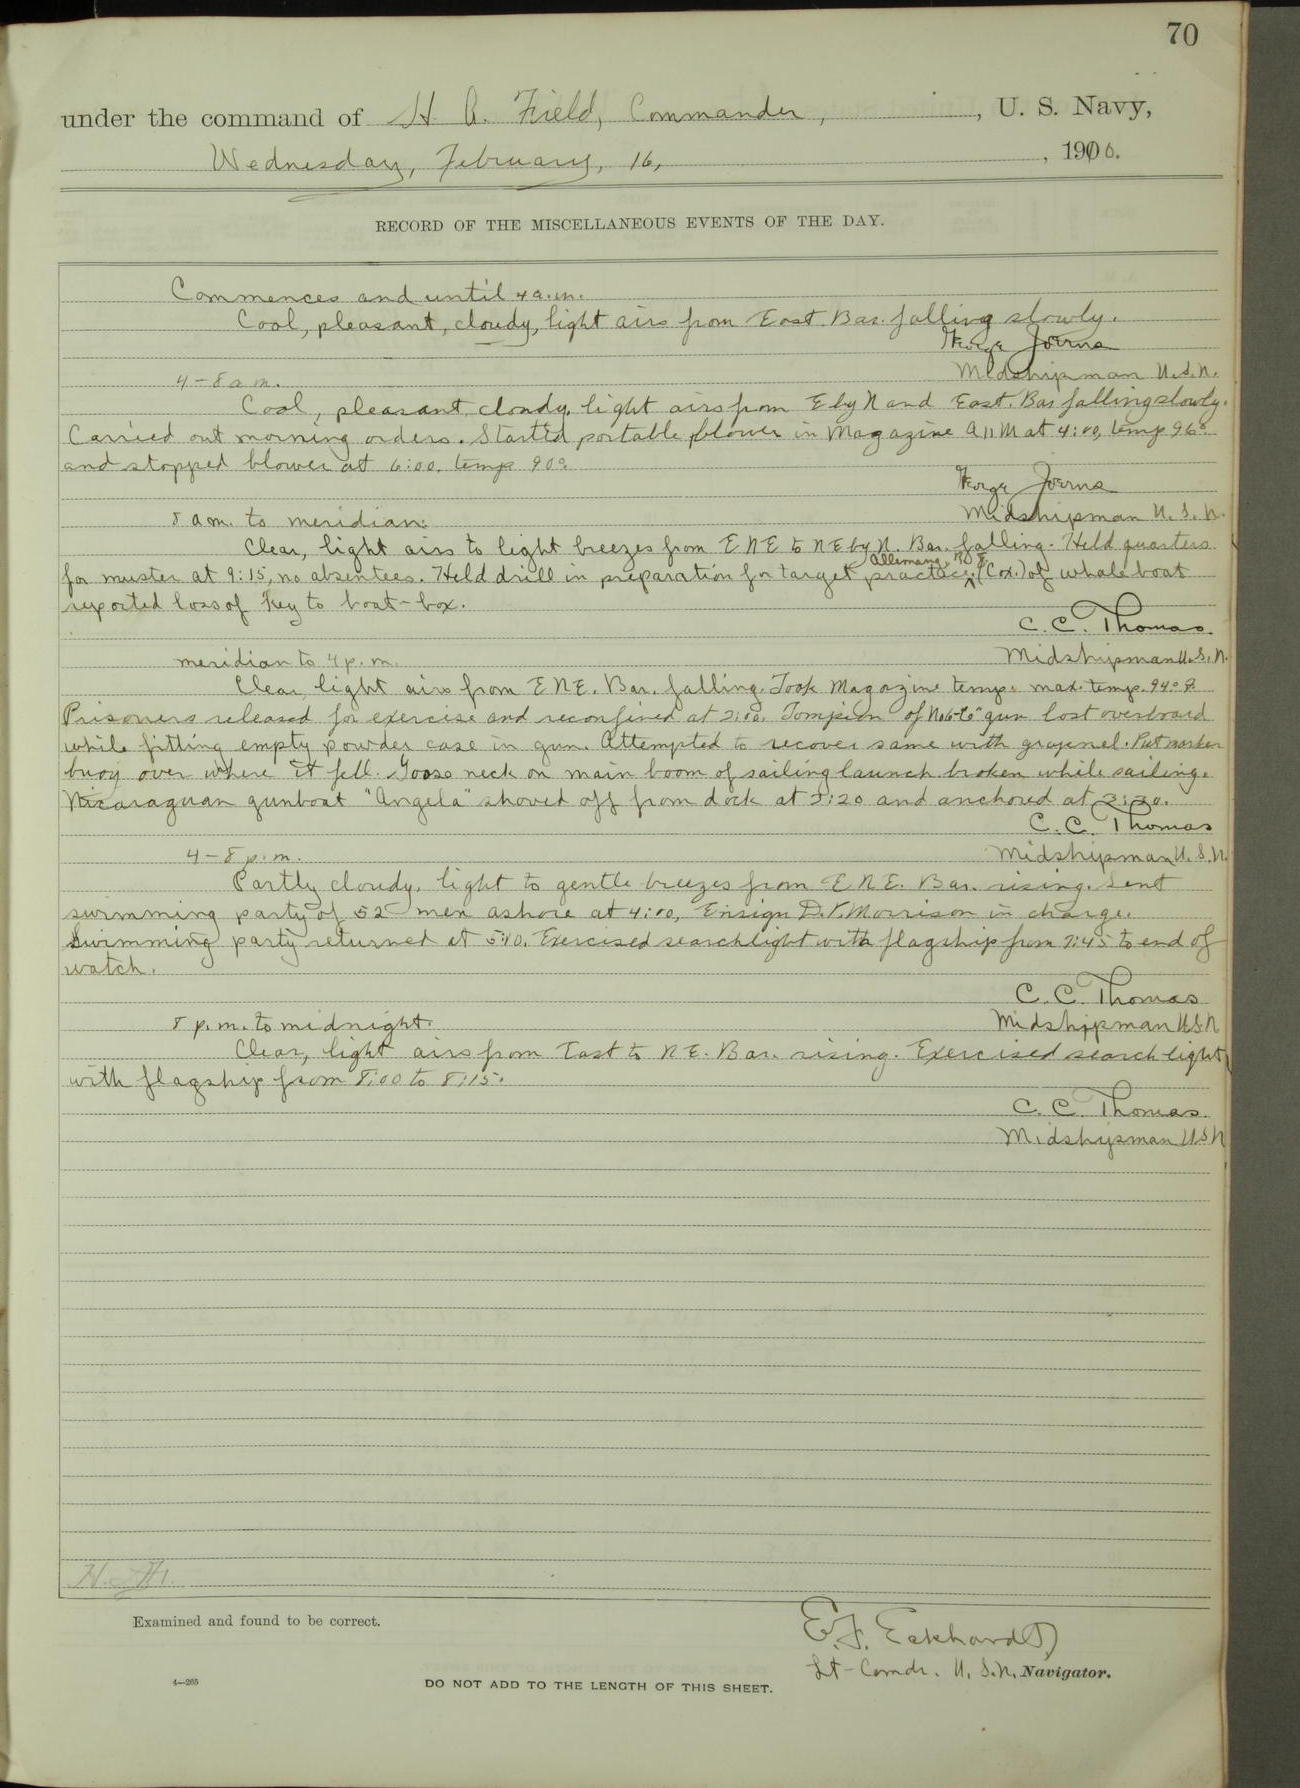 70
under the command of H. A. Field, Commander, , U. S. Navy,
Wednesday, February, 16, , 1910.
RECORD OF THE MISCELLANEOUS EVENTS OF THE DAY.
Commences and until 4 a.m.
Cool, pleasant, cloudy, light airs from East. Bar. falling slowly.
George Joerns
Midshipman U.S.N.
4-8 a m.
Cool, pleasant, cloudy, light airs from E by N and East. Bar falling slowly.
Carried out morning orders. Started portable blower in Magazine A 11 M at 4:00, temp 96°
and stopped blower at 6:00. temp 90°.
George Joerns
Midshipman U. S. N.
8 a m. to meridian:
Clear, light airs to light breezes from E N E to N E by N. Bar. falling. Held quarters
for muster at 9:15, no absentees. Held drill in preparation for target practice. Allemang, (Cox.) of whale boat
reported loss of key to boat-box.
C. C. Thomas.
Midshipman U.S.N.
meridian to 4 p. m.
Clear, light airs from E N E. Bar. falling. Took Magazine temp. max. temp. 94°
Prisoners released for exercise and reconfined at 2:00. Tompion of No 6-6" gun lost overboard
while fitting empty powder case in gun. Attempted to recover same with grapnel. Put marker
buoy over where it fell. Goose neck on main boom of sailing launch broken while sailing.
Nicaraguan gunboat "Angela" shoved off from dock at 3:20 and anchored at 3:30.
C. C. Thomas
Midshipman U. S. N.
4-8 p. m.
Partly cloudy, light to gentle breezes from E N E. Bar. rising. Sent
swimming party of 52 men ashore at 4:00, Ensign D. V. Morrison in charge.
Swimming party returned at 5:10. Exercised searchlight with flagship from 7:45 to end of
watch.
C. C. Thomas
Midshipman U.S.N
8 p. m. to midnight.
Clear, light airs from East to N E. Bar. rising. Exercised searchlight
with flagship from 8:00 to 8:15.
C. C. Thomas.
Midshipman U S N
Examined and found to be correct.
E. F. Eckhardt,
Lt-Comdr. U. S. N, Navigator.
4—265
DO NOT ADD TO THE LENGTH OF THIS SHEET.